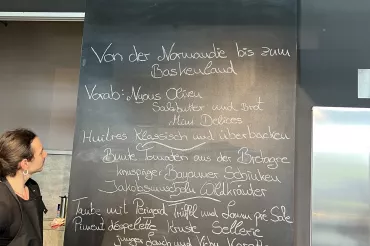 Von der Normandie bis zum
Baskenland
Vorab: Nyons Oliven
Salzbutter und Brot
Mini Delices
Huitres klassisch und überbacken
Bunte Tomaten aus der Bretagne
knuspriger Bayonner Schinken
Jakobsmuscheln Wildkräuter
Taube mit Perigord Trüffel und Lamm pré Sale
Piment despellette Kruste Sellerie
junger Lauch und